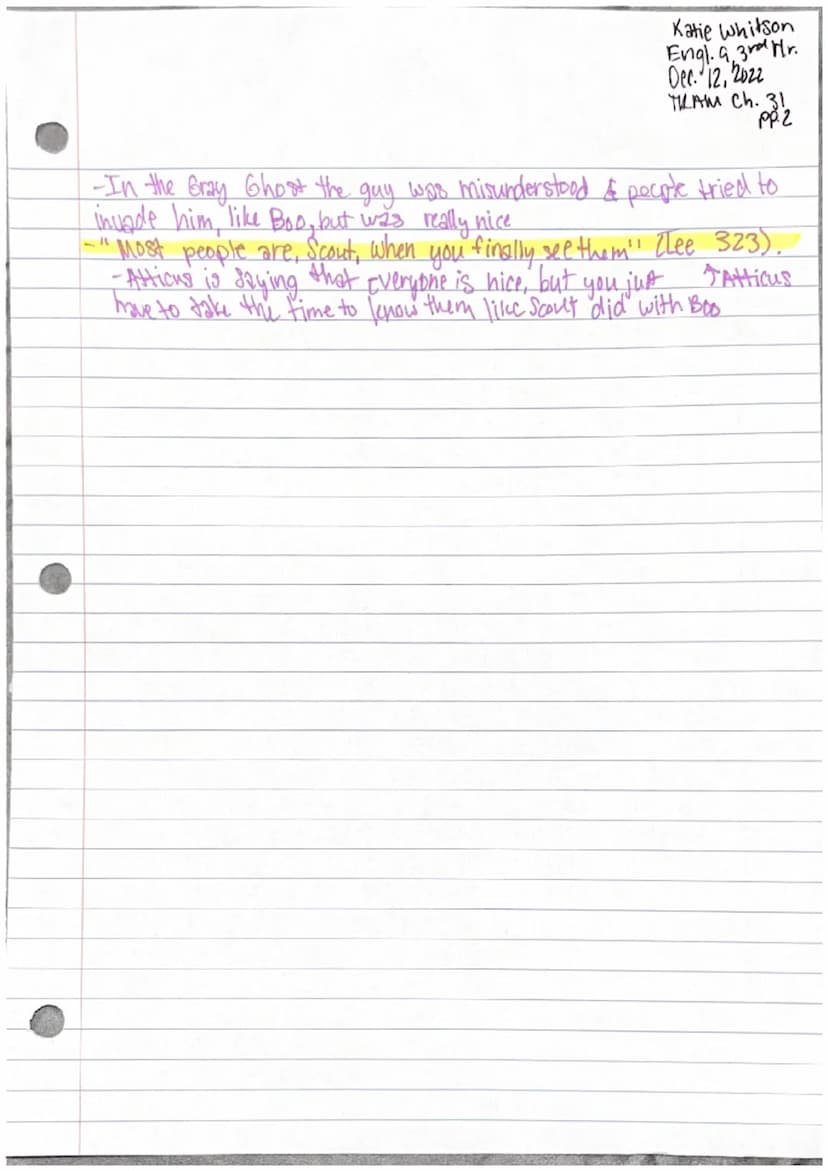 Katie Whitson
Engl. 9, 3rd Hr.
Dec. 12, 2022
TKAM Ch. 31
pp.2
-In the Gray Ghost the guy was misunderstood & people tried to
invade him, like Boo, but was really nice
-"Most people are, Scout, when you finally see them" (Lee 323).
-Atticus is saying that everyone is nice, but you just ↑Atticus
have to take the time to know them like Scout did with Boo